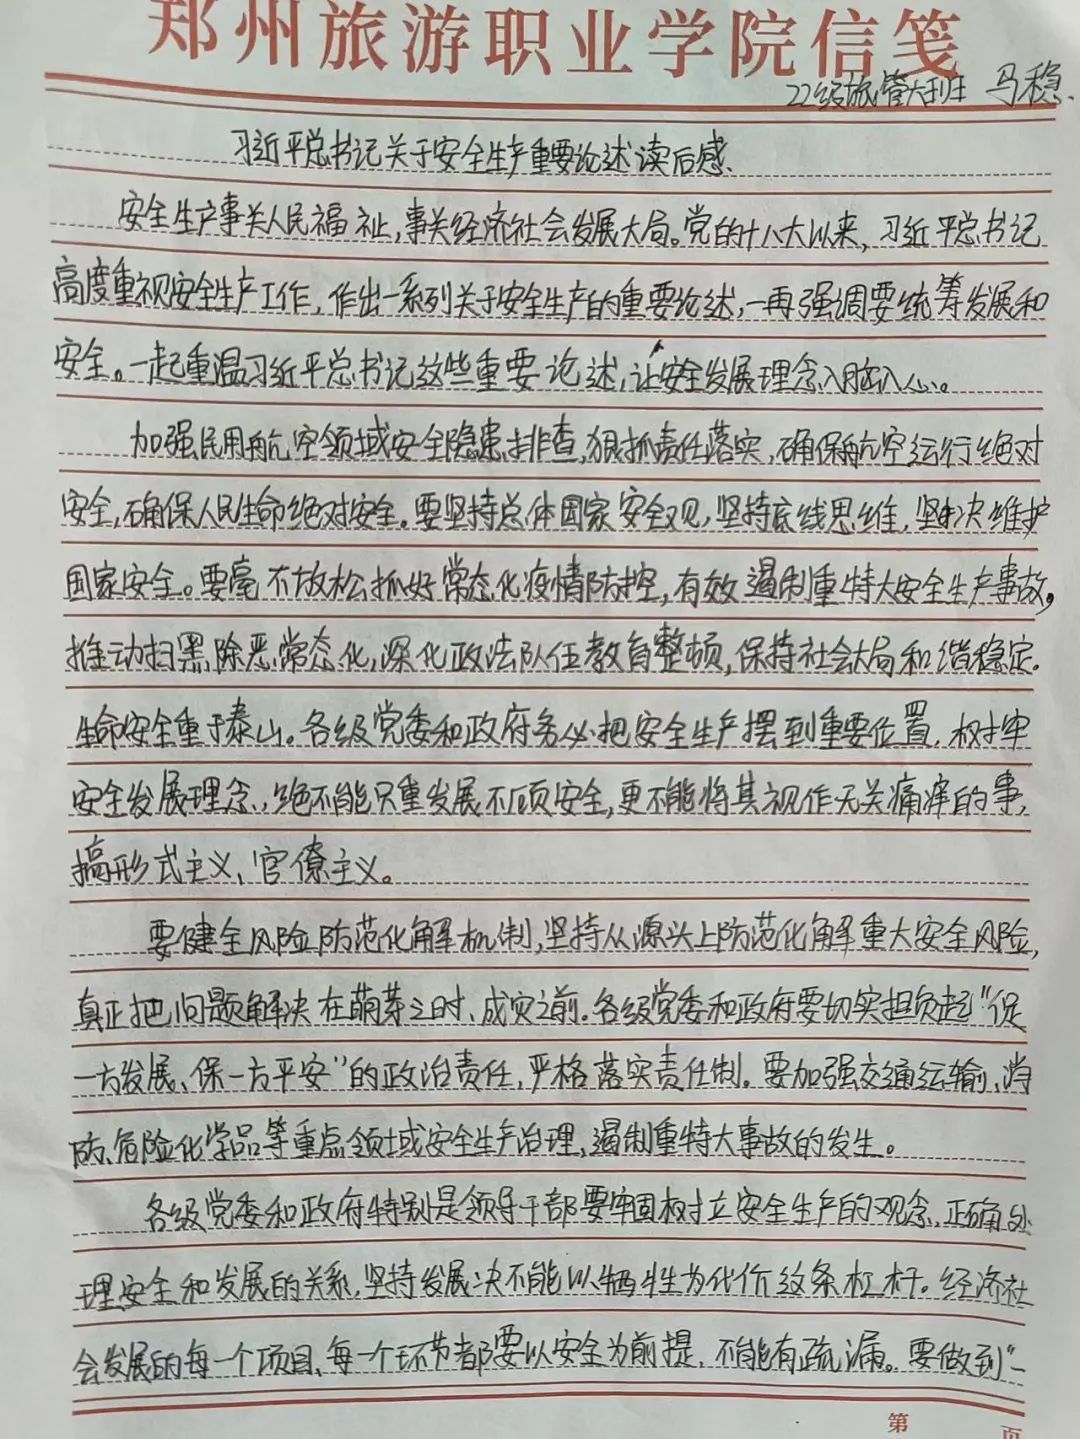 郑州旅游职业学院信笺
22级旅管大班 马稳.
习近平总书记关于安全生产重要论述读后感.
安全生产事关人民福祉,事关经济社会发展大局。党的十八大以来,习近平总书记
高度重视安全生产工作,作出一系列关于安全生产的重要论述,一再强调要统筹发展和
安全。一起重温习近平总书记这些重要论述,让安全发展理念入脑入心。
加强民用航空领域安全隐患排查,狠抓责任落实,确保航空运行绝对
安全,确保人民生命绝对安全。要坚持总体国家安全观,坚持底线思维,坚决维护
国家安全。要毫不放松抓好常态化疫情防控,有效遏制重特大安全生产事故,
推动扫黑除恶常态化,深化政法队伍教育整顿,保持社会大局和谐稳定.
生命安全重于泰山。各级党委和政府务必把安全生产摆到重要位置,树牢
安全发展理念,绝不能只重发展不顾安全,更不能将其视作无关痛痒的事,
搞形式主义、官僚主义。
要健全风险防范化解机制,坚持从源头上防范化解重大安全风险,
真正把问题解决在萌芽之时、成灾之前.各级党委和政府要切实担负起“促
一方发展、保一方平安”的政治责任,严格落实责任制。要加强交通运输、消
防、危险化学品等重点领域安全生产治理,遏制重特大事故的发生。
各级党委和政府特别是领导干部要牢固树立安全生产的观念,正确处
理安全和发展的关系,坚持发展决不能以牺牲为代价这条杠杆。经济社
会发展的每一个项目、每一个环节都要以安全为前提,不能有疏漏。要做到“一
第 页